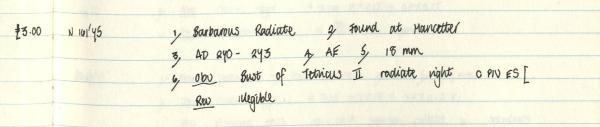 £3.00 N 161/45 1, Barbarous Radiate 2, Found at Mancetter
3, AD 270 - 273 4, AE 5, 18 mm
6, Obv Bust of Tetricus II radiate right C PIV ES [
Rev illegible